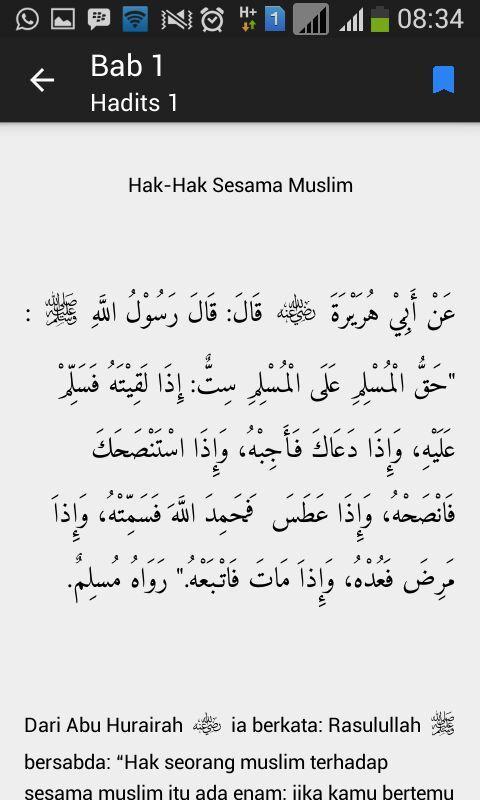 H+ 1 08:34
Bab 1
Hadits 1
Hak-Hak Sesama Muslim
عَنْ أَبِيْ هُرَيْرَةَ رضي الله عنه قَالَ: قَالَ رَسُوْلُ اللَّهِ ﷺ :
"حَقُّ الْمُسْلِمِ عَلَى الْمُسْلِمِ سِتٌّ: إِذَا لَقِيْتَهُ فَسَلِّمْ
عَلَيْهِ، وَإِذَا دَعَاكَ فَأَجِبْهُ، وَإِذَا اسْتَنْصَحَكَ
فَانْصَحْهُ، وَإِذَا عَطَسَ فَحَمِدَ اللَّهَ فَسَمِّتْهُ، وَإِذاَ
مَرِضَ فَعُدْهُ، وَإِذاَ مَاتَ فَاتْبَعْهُ." رَوَاهُ مُسلِمٌ.
Dari Abu Hurairah رضي الله عنه ia berkata: Rasulullah ﷺ
bersabda: “Hak seorang muslim terhadap
sesama muslim itu ada enam: jika kamu bertemu